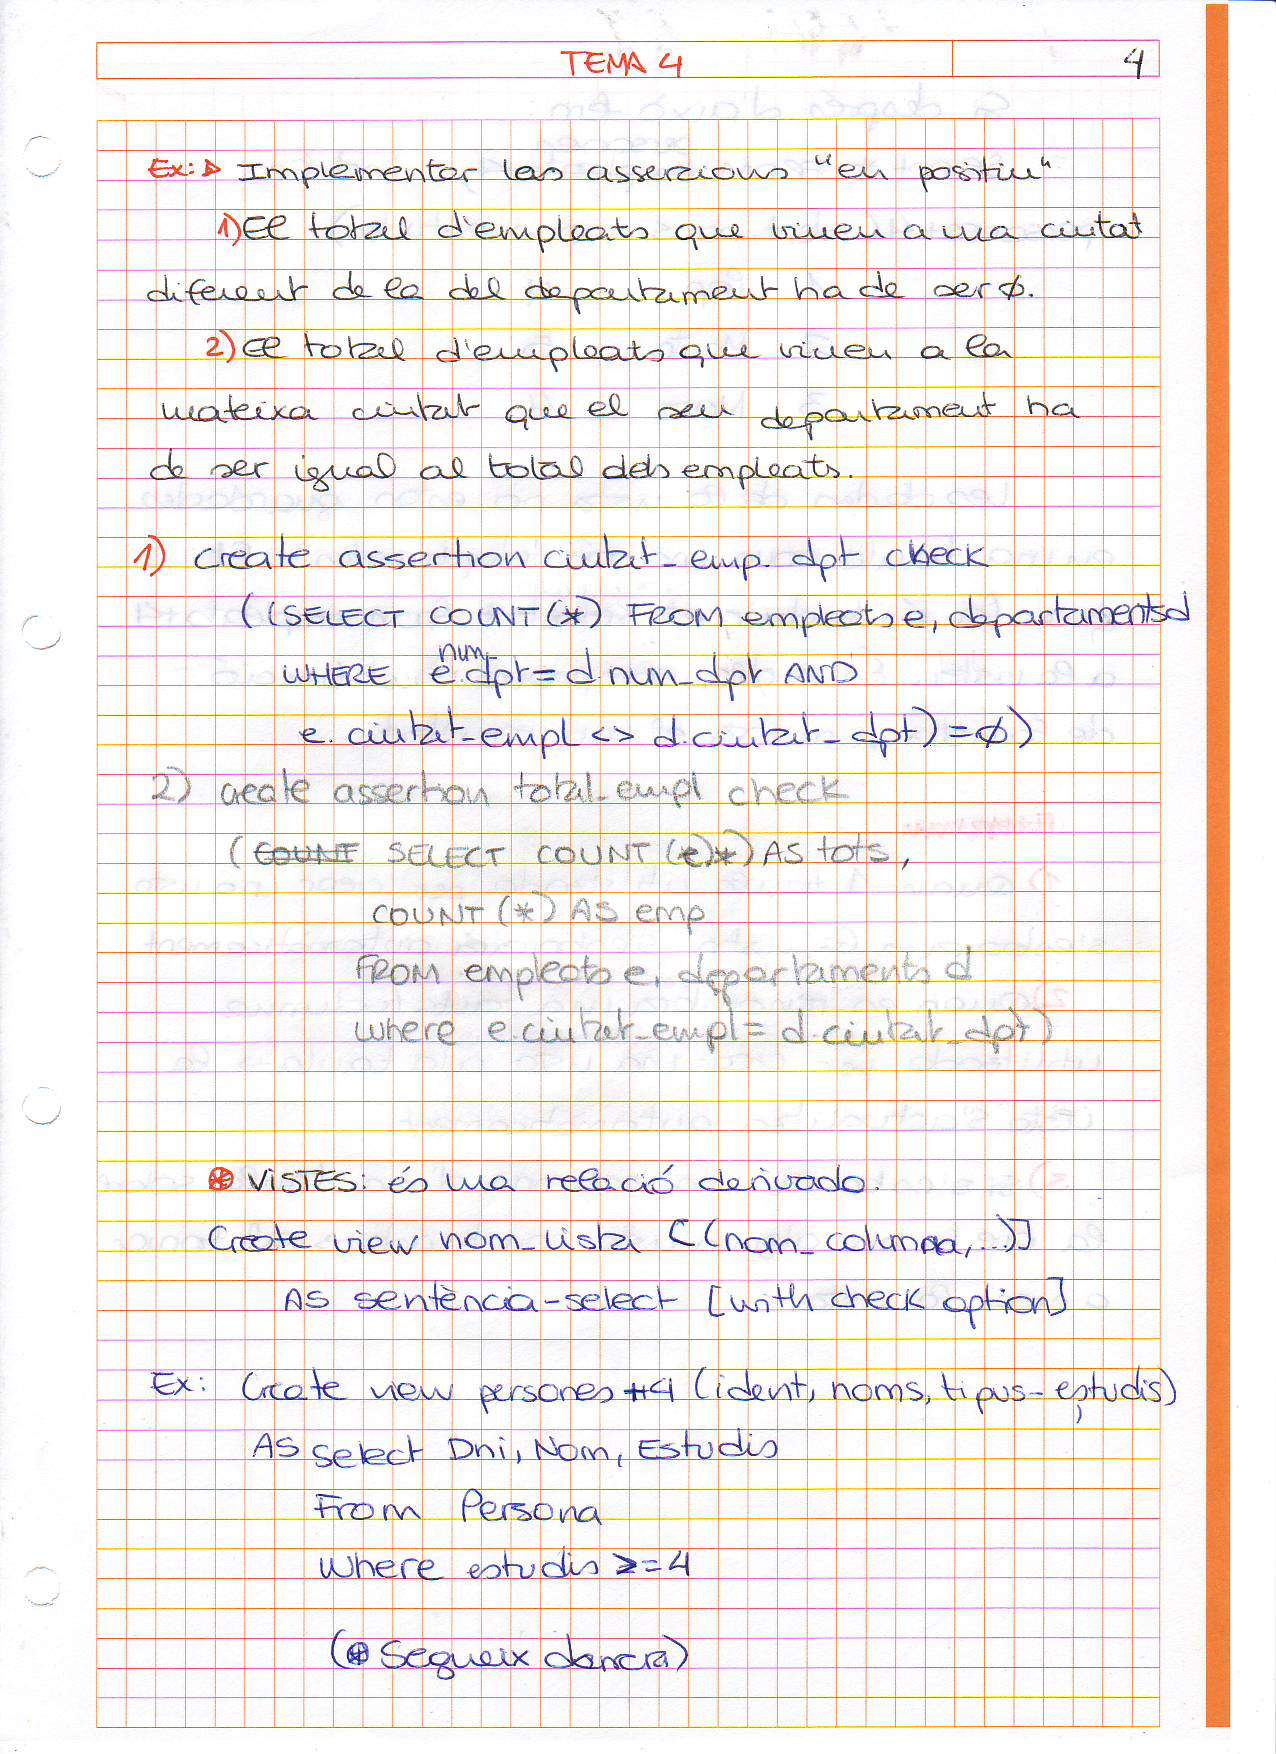 TEMA 4
4
Ex: Implementar les assercions "en positiu"
1) El total d'empleats que viuen a una ciutat
diferent de la del departament ha de ser ∅.
2) El total d'empleats que viuen a la
mateixa ciutat que el seu departament ha
de ser igual al total dels empleats.
1) create assertion ciutat_emp_dpt check
((SELECT COUNT(*) FROM empleats e, departaments d
WHERE e.num_dpt = d.num_dpt AND
e.ciutat_empl <> d.ciutat_dpt) = ∅)
2) create assertion total_empl check
(COUNT SELECT COUNT(e)*) AS tots,
COUNT(*) AS emp
FROM empleats e, departaments d
where e.ciutat_empl = d.ciutat_dpt)
VISTES: és una relació derivada.
Create view nom_vista [(nom_columna,...)]
AS sentència-select [with check option]
Ex: Create view persones +4 (ident, noms, tipus-estudis)
AS select Dni, Nom, Estudis
From Persona
Where estudis >=4
(* Segueix darrera)